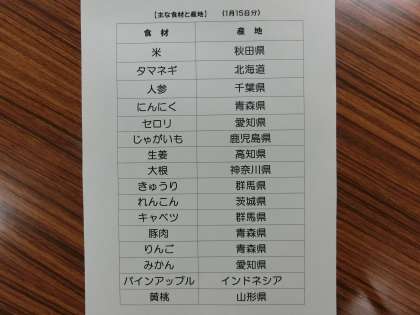 【主な食材と産地】 （1月15日分）
食材 産地
米 秋田県
タマネギ 北海道
人参 千葉県
にんにく 青森県
セロリ 愛知県
じゃがいも 鹿児島県
生姜 高知県
大根 神奈川県
きゅうり 群馬県
れんこん 茨城県
キャベツ 群馬県
豚肉 青森県
りんご 青森県
みかん 愛知県
パインアップル インドネシア
黄桃 山形県